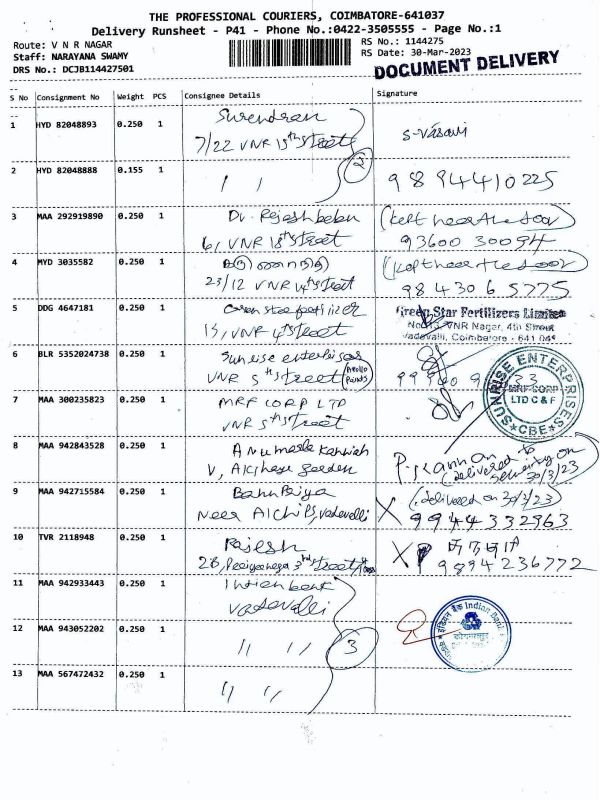 THE PROFESSIONAL COURIERS, COIMBATORE-641037
Delivery Runsheet - P41 - Phone No.:0422-3505555 - Page No.:1
Route: V N R NAGAR
Staff: NARAYANA SWAMY
DRS No.: DCJB114427501
RS No.: 1144275
RS Date: 30-Mar-2023
DOCUMENT DELIVERY
S No Consignment No Weight PCS Consignee Details Signature
1 HYD 82048893 0.250 1 Surendran
7/22 VNR 15th street S-Vasavi
2
2 HYD 82048888 0.155 1 " " 9894410225
3 MAA 292919890 0.250 1 Dr. Rajesh babu (kept near the door)
6, VNR 18th street 93600 30094
4 MYD 3035582 0.250 1 (kept near the door)
23/12 VNR 4th street 98430 65775
5 DDG 4647181 0.250 1 Green star fertilizer Green Star Fertilizers Limited
15, VNR 4th street No. 15, VNR Nagar, 4th Street
Vadavalli, Coimbatore - 641 041
6 BLR 5352024738 0.250 1 Sunrise enterprises
VNR 5th street Apollo Paints
SUNRISE ENTERPRISES
MRF CORP
LTD C & F
CBE
7 MAA 300235823 0.250 1 MRF CORP LTD
VNR 5th street
8 MAA 942843528 0.250 1 Anumarla Kanniah P. Kannan
V, Akshaya garden (delivered to security on 30/3/23)
9 MAA 942715584 0.250 1 Banu Priya (delivered on 30/3/23)
Near Alchips, Vadavalli X 99443 32963
10 TVR 2118948 0.250 1 Rajesh X
2B, 3rd street 9894236772
11 MAA 942933443 0.250 1 Indian bank
Vadavalli
12 MAA 943052202 0.250 1 " " 3
Indian Bank
13 MAA 567472432 0.250 1 " "